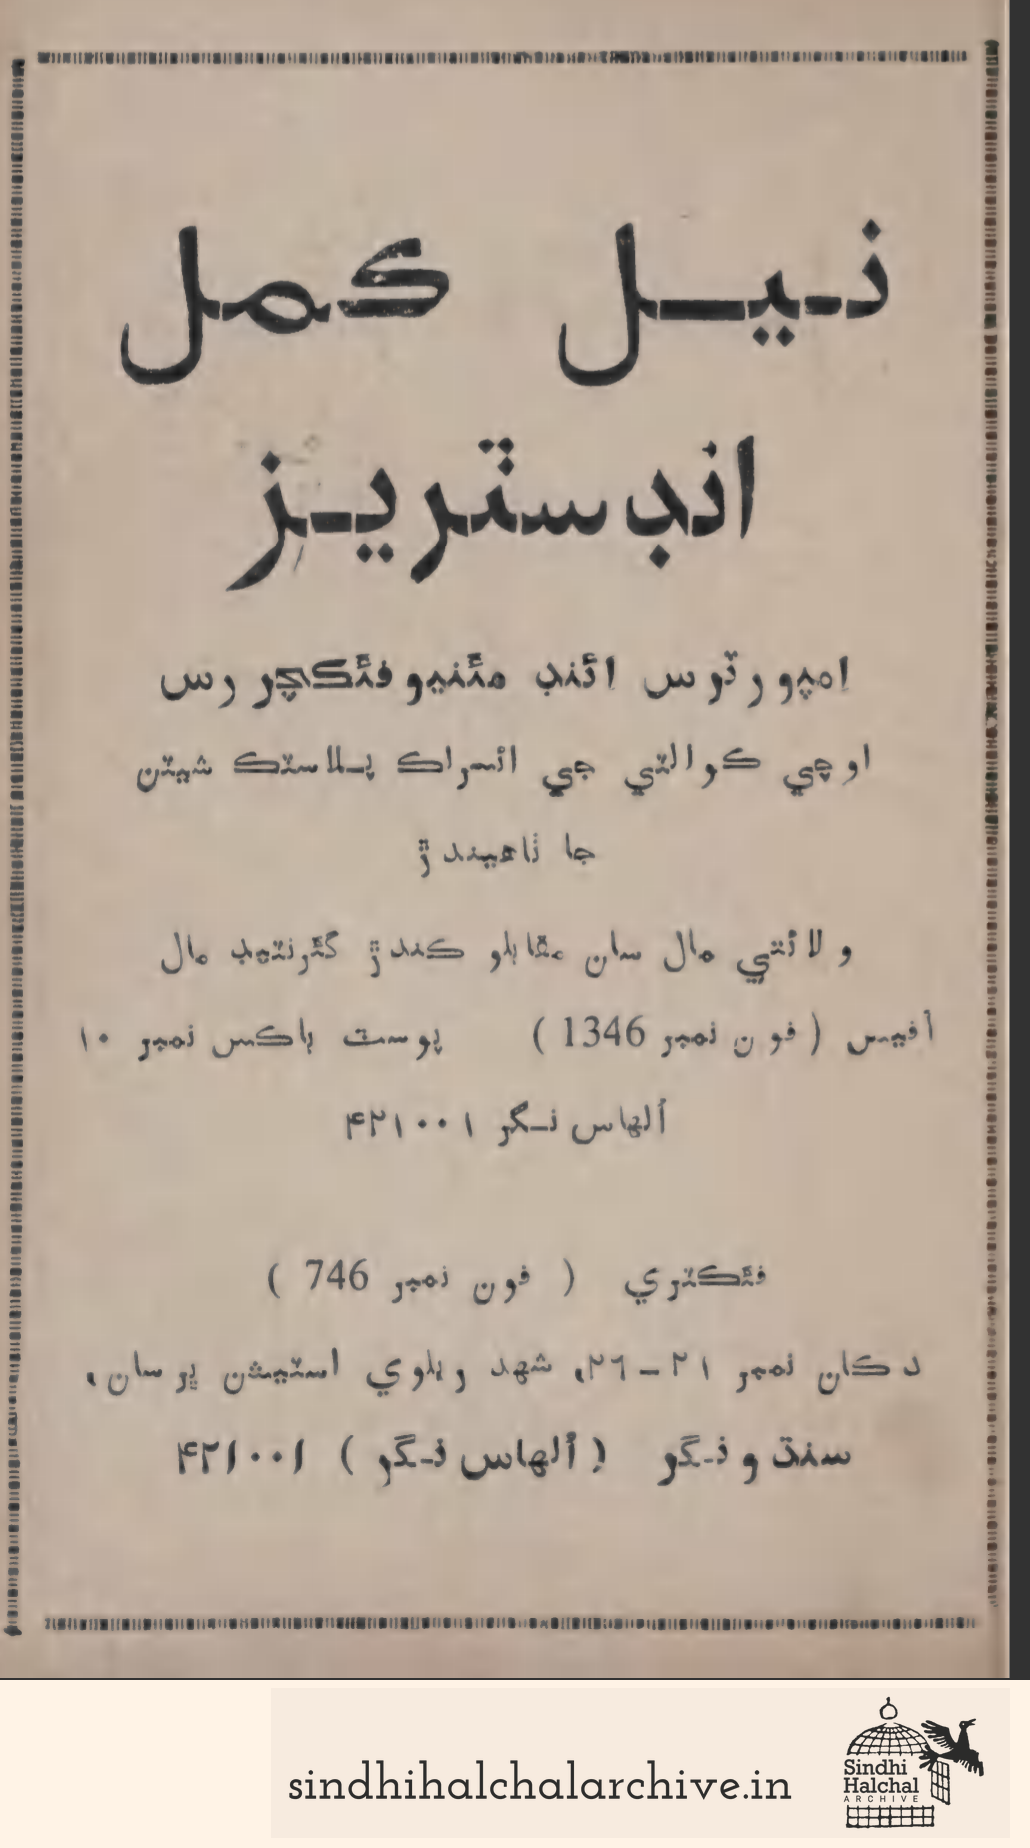 نيل ڪمل
انڊسٽريز
امپورٽرس ائنڊ مئنيوفئڪچررس
اوچي ڪوالٽي جي ائسراڪ پلاسٽڪ شيٽن
جا ٺاهيندڙ
ولائتي مال سان مقابلو ڪندڙ گئرنٽيڊ مال
آفيس (فون نمبر 1346) پوسٽ باڪس نمبر ۱۰
اُلهاس نگر ۴۲۱۰۰۱
فئڪٽري (فون نمبر 746)
دڪان نمبر ۲۱ – ۲٦، شهد ريلوي اسٽيشن ڀرسان،
سنت و نگر (اُلهاس نگر) ۴۲۱۰۰۱
sindhihalchalarchive.in
Sindhi
Halchal
ARCHIVE